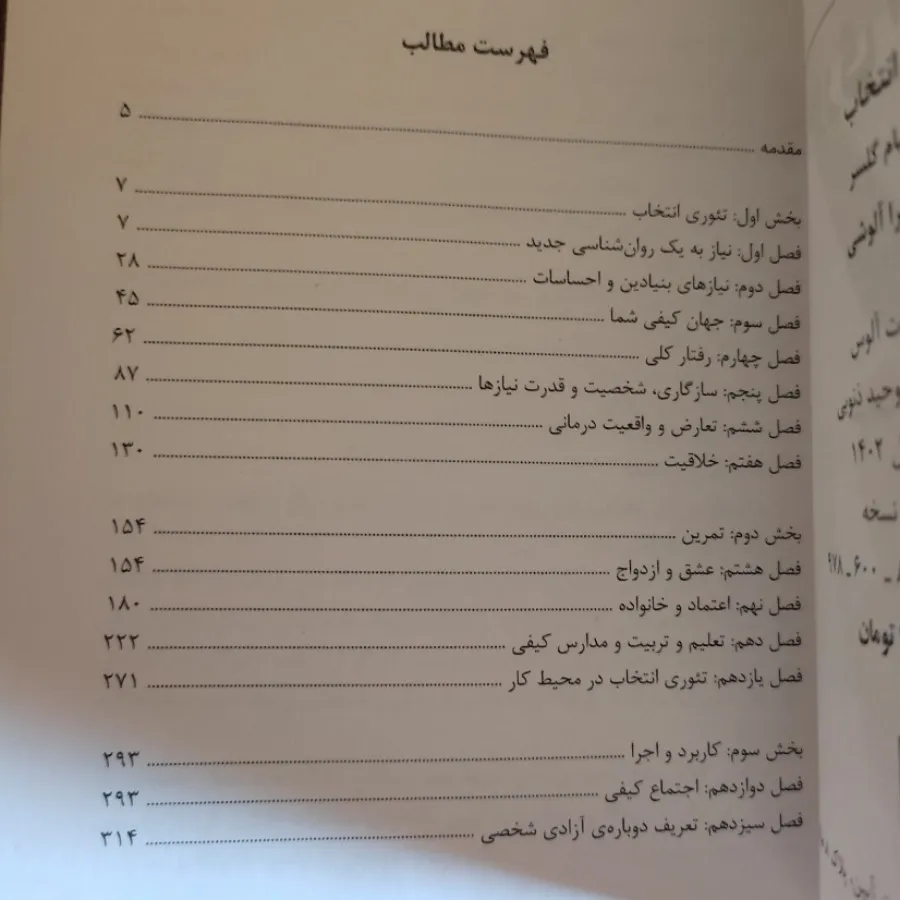 فهرست مطالب
مقدمه ........ ۵
بخش اول: تئوری انتخاب ........ ۷
فصل اول: نیاز به یک روان‌شناسی جدید ........ ۷
فصل دوم: نیازهای بنیادین و احساسات ........ ۲۸
فصل سوم: جهان کیفی شما ........ ۴۵
فصل چهارم: رفتار کلی ........ ۶۲
فصل پنجم: سازگاری، شخصیت و قدرت نیازها ........ ۸۷
فصل ششم: تعارض و واقعیت درمانی ........ ۱۱۰
فصل هفتم: خلاقیت ........ ۱۳۰
بخش دوم: تمرین ........ ۱۵۴
فصل هشتم: عشق و ازدواج ........ ۱۵۴
فصل نهم: اعتماد و خانواده ........ ۱۸۰
فصل دهم: تعلیم و تربیت و مدارس کیفی ........ ۲۲۲
فصل یازدهم: تئوری انتخاب در محیط کار ........ ۲۷۱
بخش سوم: کاربرد و اجرا ........ ۲۹۳
فصل دوازدهم: اجتماع کیفی ........ ۲۹۳
فصل سیزدهم: تعریف دوباره‌ی آزادی شخصی ........ ۳۱۴
انتخاب
گلسر
آلوشی
آلوس
وحید
۱۴۰۲
نسخه
۹۷۸ـ۶۰۰ـ
تومان